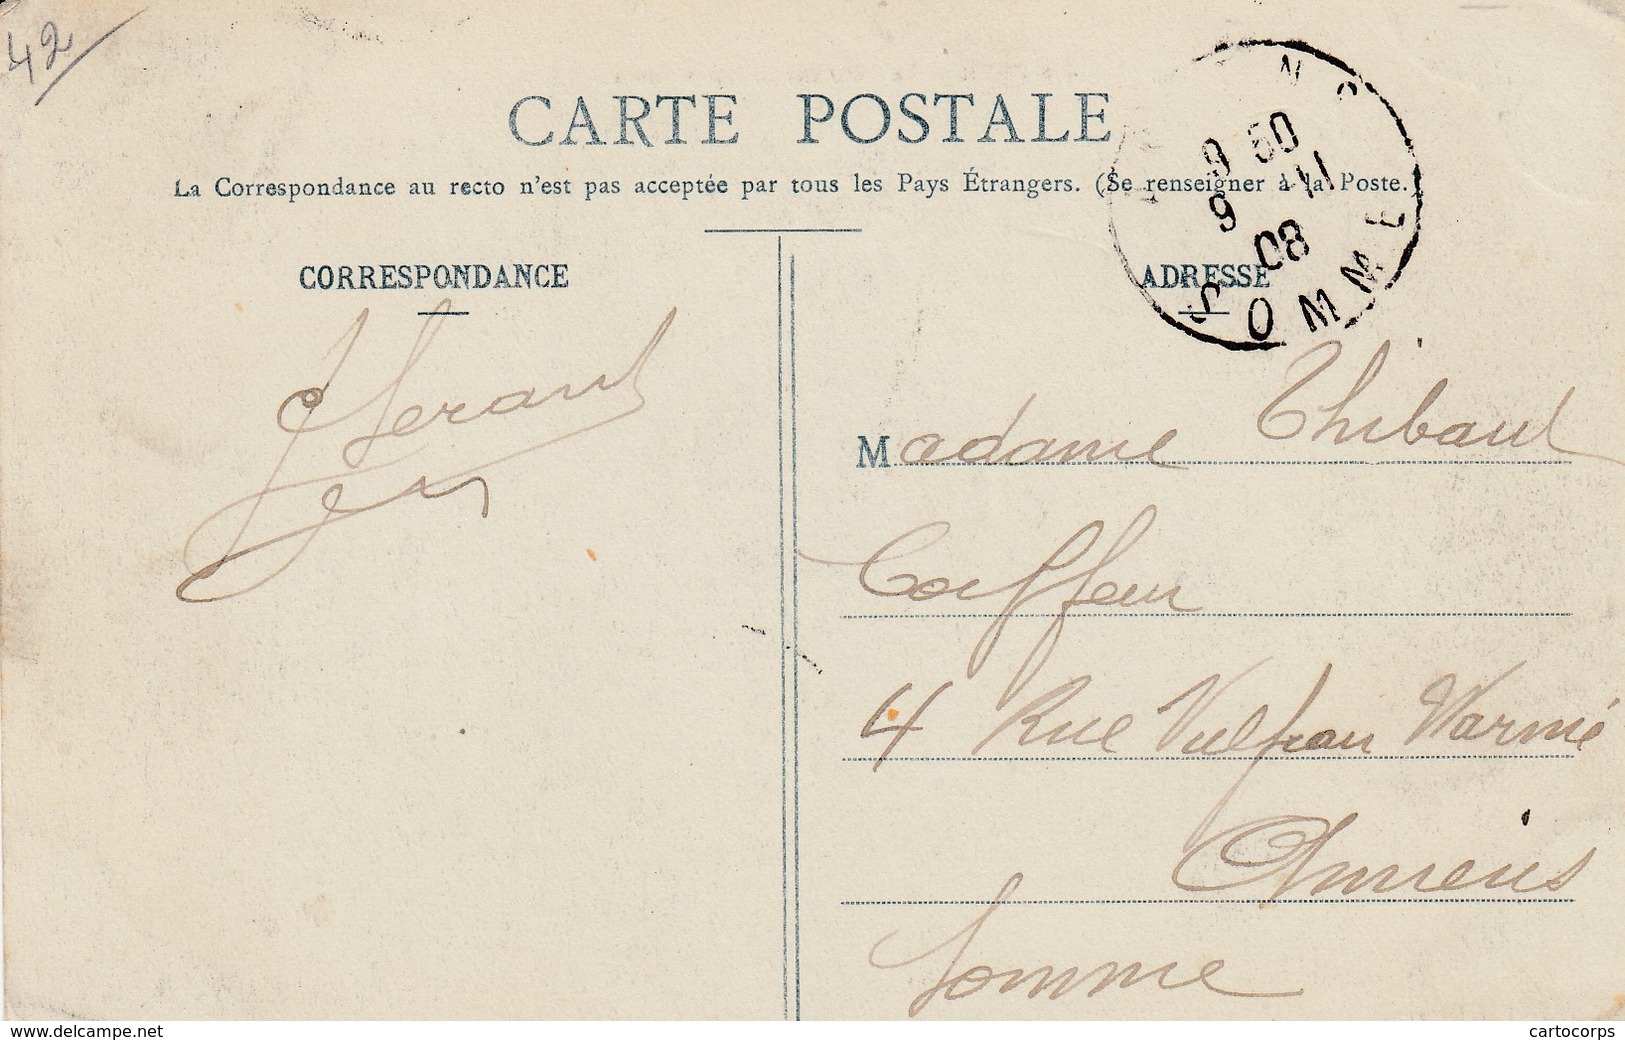 42
CARTE POSTALE
La Correspondance au recto n'est pas acceptée par tous les Pays Étrangers. (Se renseigner à la Poste.)
CORRESPONDANCE
ADRESSE
9 50
9 11
08
SOMME
Madame Thibaut
Coiffeur
4 Rue Vulfran Warmé
Amiens
Somme
www.delcampe.net
cartocorps